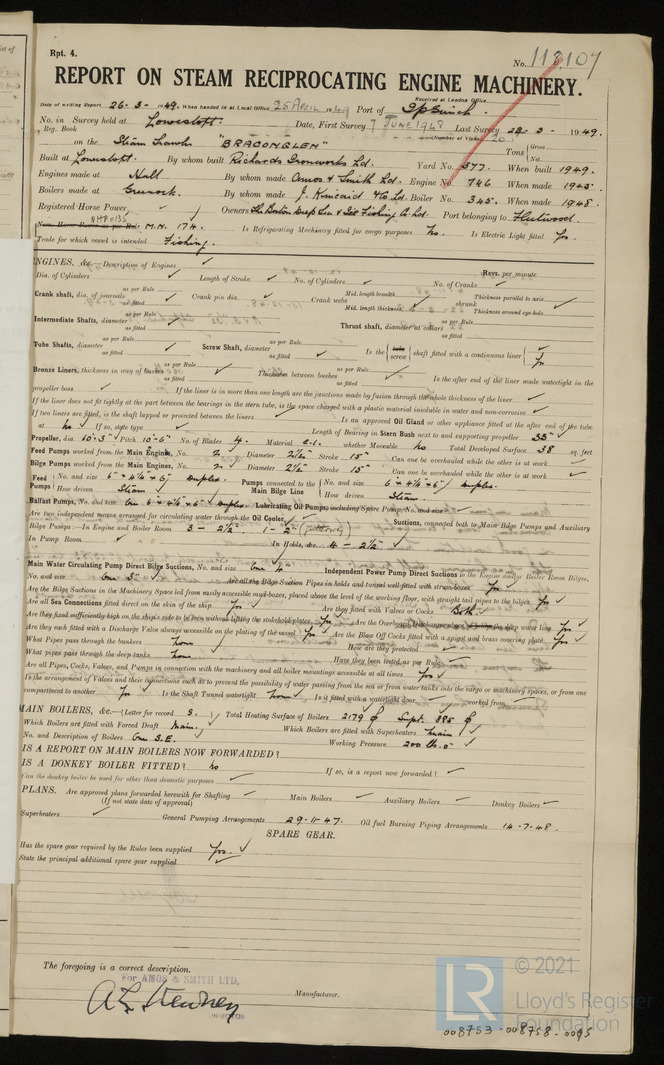 Rpt. 4.
No. 118,107
REPORT ON STEAM RECIPROCATING ENGINE MACHINERY.
Received at London Office
Date of writing Report 26-3-1949. When handed in at Local Office 25 APRIL 1949 Port of Ipswich
No. in Survey held at Lowestoft. Date, First Survey 7 JUNE 1948 Last Survey 22-3-1949.
Reg. Book (Number of Visits 20)
on the Steam Trawler "BRACONGLEN" Tons { Gross Net
Built at Lowestoft. By whom built Richards Ironworks Ltd. Yard No. 377. When built 1949.
Engines made at Hull By whom made Amos & Smith Ltd. Engine No. 746 When made 1945.
Boilers made at Greenock. By whom made J. Kincaid & Co Ltd. Boiler No. 345. When made 1948.
Registered Horse Power Owners The Boston Deep Sea & Ice Fishing Co. Ltd. Port belonging to Fleetwood.
NHP=135
Nom. Horse Power as per Rule M.N. 174. Is Refrigerating Machinery fitted for cargo purposes No. Is Electric Light fitted Yes.
Trade for which vessel is intended Fishing.
ENGINES, &c.—Description of Engines Revs. per minute
Dia. of Cylinders Length of Stroke No. of Cylinders No. of Cranks
Crank shaft, dia. of journals as per Rule as fitted Crank pin dia. Crank webs Mid. length breadth Mid. length thickness shrunk Thickness parallel to axis Thickness around eye-hole
Intermediate Shafts, diameter as per Rule as fitted Thrust shaft, diameter at collars as per Rule as fitted
Tube Shafts, diameter as per Rule as fitted Screw Shaft, diameter as per Rule as fitted Is the { tube screw } shaft fitted with a continuous liner { Yes
Bronze Liners, thickness in way of bushes as per Rule as fitted Thickness between bushes as per Rule as fitted Is the after end of the liner made watertight in the
propeller boss If the liner is in more than one length are the junctions made by fusion through the whole thickness of the liner
If the liner does not fit tightly at the part between the bearings in the stern tube, is the space charged with a plastic material insoluble in water and non-corrosive
If two liners are fitted, is the shaft lapped or protected between the liners Is an approved Oil Gland or other appliance fitted at the after end of the tube
shaft No If so, state type Length of Bearing in Stern Bush next to and supporting propeller 35"
Propeller, dia. 10'-3" Pitch 10'-6" No. of Blades 4. Material C.I. whether Moveable No Total Developed Surface 38 sq. feet
Feed Pumps worked from the Main Engines, No. 2 Diameter 2½" Stroke 15" Can one be overhauled while the other is at work
Bilge Pumps worked from the Main Engines, No. 2 Diameter 2½" Stroke 15" Can one be overhauled while the other is at work
Feed Pumps { No. and size 6" × 4¼" × 6" Duplex. How driven Steam Pumps connected to the Main Bilge Line { No. and size 6" × 4¼" × 6" Duplex. How driven Steam.
Ballast Pumps, No. and size One 6" × 4¼" × 6" Duplex Lubricating Oil Pumps, including Spare Pump, No. and size
Are two independent means arranged for circulating water through the Oil Cooler Suctions, connected both to Main Bilge Pumps and Auxiliary
Bilge Pumps:—In Engine and Boiler Room 3 - 2½". 1 - 2"
In Pump Room In Holds, &c. 4 - 2½"
Main Water Circulating Pump Direct Bilge Suctions, No. and size One 4" Independent Power Pump Direct Suctions to the Engine and/or Boiler Room Bilges,
No. and size One 3" Are all the Bilge Suction Pipes in holds and tunnel well fitted with strum-boxes Yes
Are the Bilge Suctions in the Machinery Space led from easily accessible mud-boxes, placed above the level of the working floor, with straight tail pipes to the bilges Yes
Are all Sea Connections fitted direct on the skin of the ship Yes Are they fitted with Valves or Cocks Both
Are they fixed sufficiently high on the ship's side to be seen without lifting the stokehold plates Yes Are the Overboard Discharges above or below the deep water line Yes
Are they each fitted with a Discharge Valve always accessible on the plating of the vessel Yes Are the Blow Off Cocks fitted with a spigot and brass covering plate Yes
What Pipes pass through the bunkers None How are they protected
What pipes pass through the deep tanks None Have they been tested as per Rule
Are all Pipes, Cocks, Valves, and Pumps in connection with the machinery and all boiler mountings accessible at all times Yes
Is the arrangement of Valves and their connections such as to prevent the possibility of water passing from the sea or from water tanks into the cargo or machinery spaces, or from one
compartment to another Yes Is the Shaft Tunnel watertight None Is it fitted with a watertight door worked from
MAIN BOILERS, &c.—(Letter for record S.) Total Heating Surface of Boilers 2179 Supt. 385
Which Boilers are fitted with Forced Draft Main. Which Boilers are fitted with Superheaters Main
No. and Description of Boilers One S.E. Working Pressure 200 lb.
IS A REPORT ON MAIN BOILERS NOW FORWARDED?
IS A DONKEY BOILER FITTED? No If so, is a report now forwarded?
Can the donkey boiler be used for other than domestic purposes
PLANS. Are approved plans forwarded herewith for Shafting Main Boilers Auxiliary Boilers Donkey Boilers
(If not state date of approval)
Superheaters General Pumping Arrangements 29-11-47. Oil fuel Burning Piping Arrangements 14-7-48.
SPARE GEAR.
Has the spare gear required by the Rules been supplied Yes.
State the principal additional spare gear supplied
The foregoing is a correct description.
For AMOS & SMITH LTD.
Manufacturer.
© 2021
LR
Lloyd's Register
Foundation
008753-008758-0095